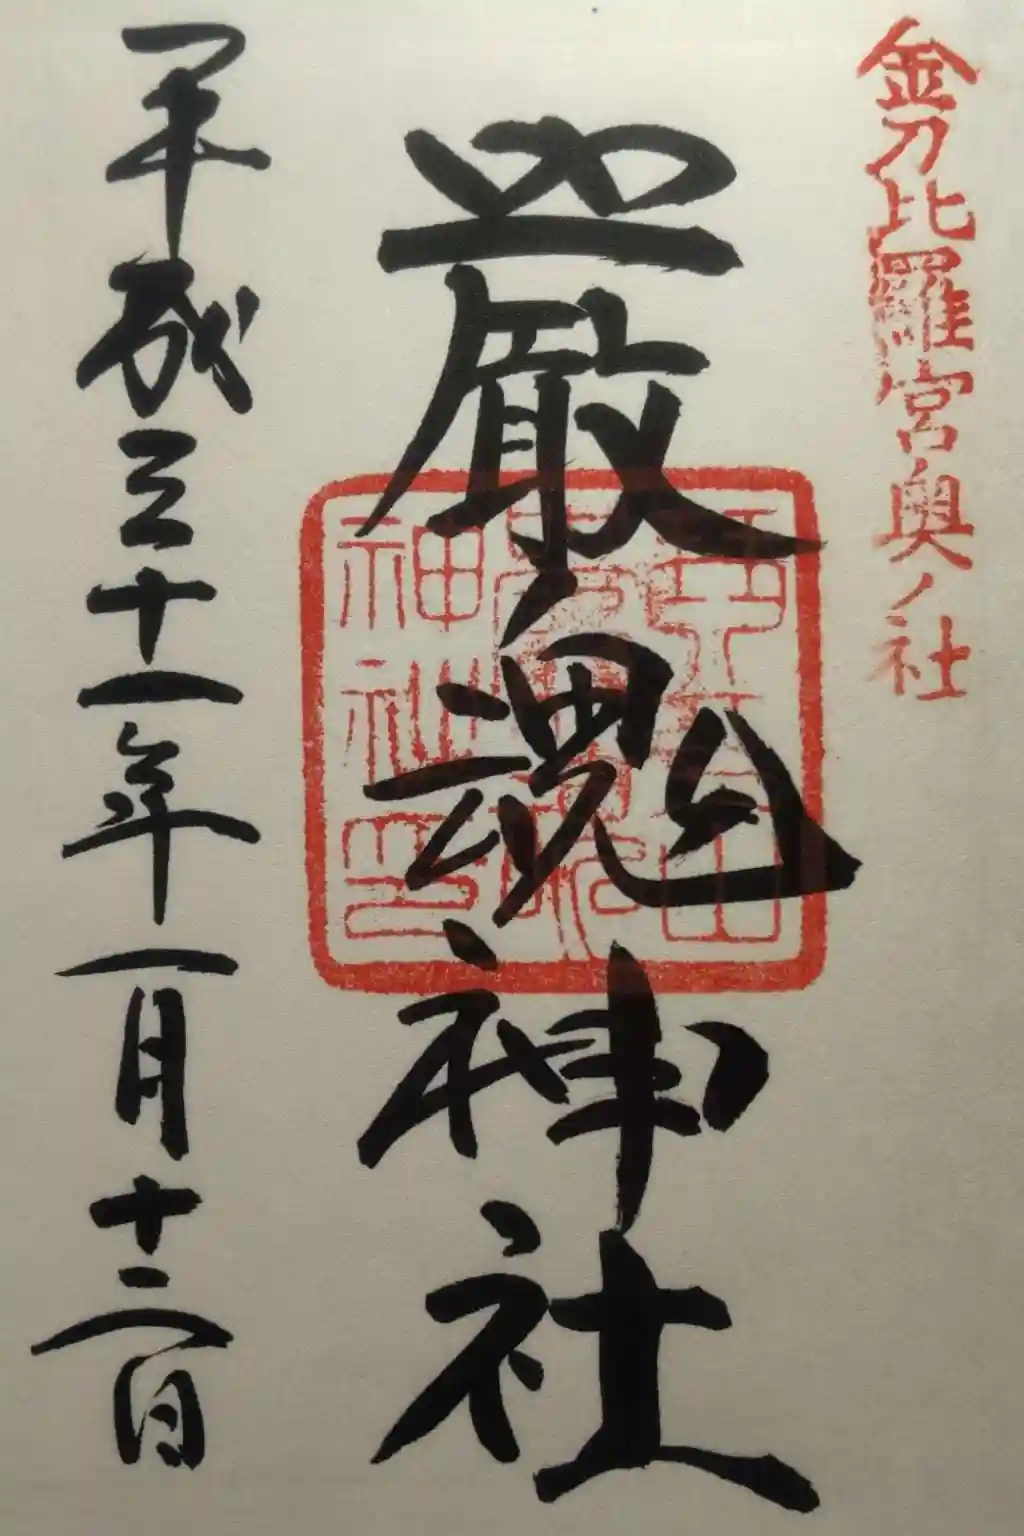 金刀比羅宮奥ノ社
厳魂神社
平成三十一年一月十二日